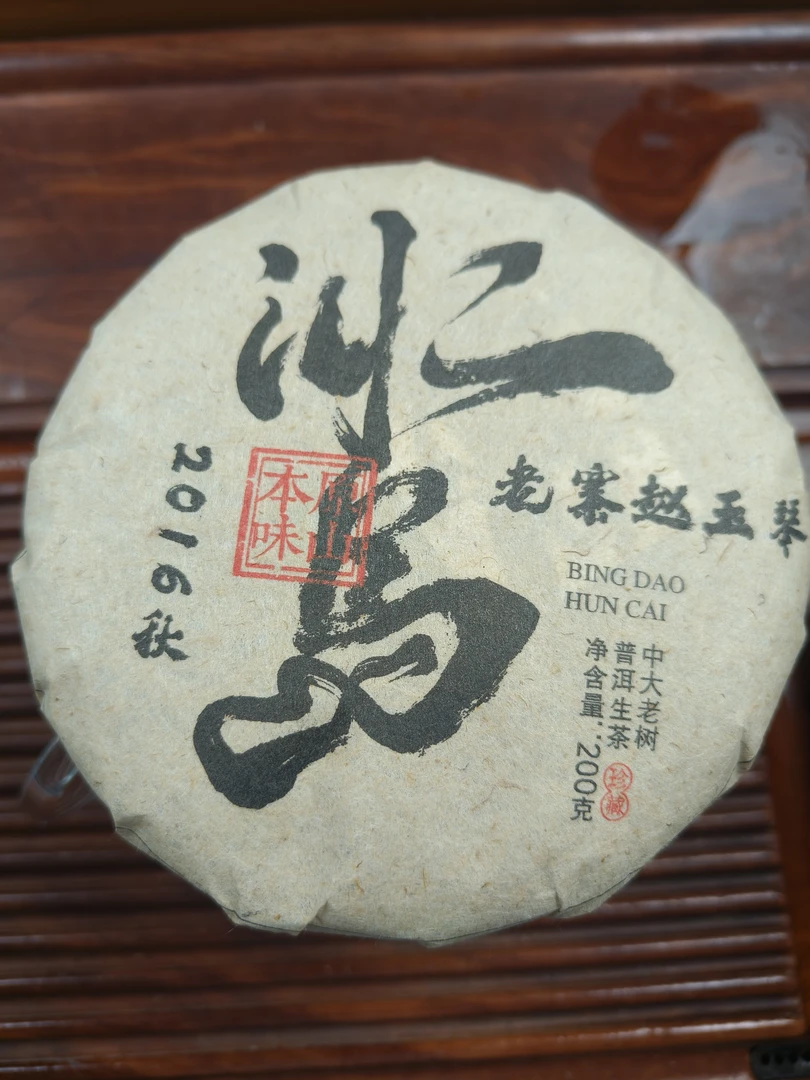 冰島
老寨趙玉琴
BING DAO
HUN CAI
中大老树
普洱生茶
珍藏
净含量:200克
原山
本味
2016秋